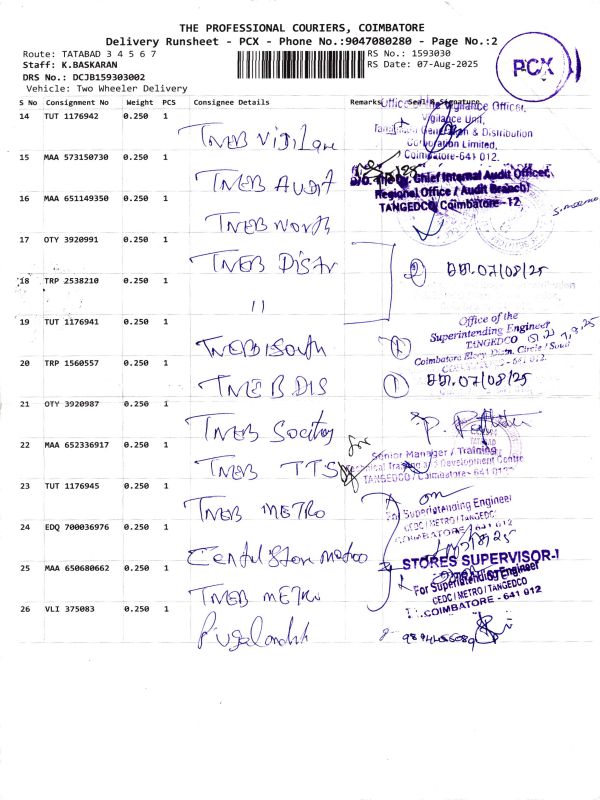 THE PROFESSIONAL COURIERS, COIMBATORE
Delivery Runsheet - PCX - Phone No.:9047080280 - Page No.:2
Route: TATABAD 3 4 5 6 7
RS No.: 1593030
Staff: K.BASKARAN
RS Date: 07-Aug-2025
DRS No.: DCJB159303002
Vehicle: Two Wheeler Delivery
PCX
S No Consignment No Weight PCS Consignee Details Remarks Seal & Signature
14 TUT 1176942 0.250 1
Office of the Vigilance Officer,
Vigilance Unit,
Tangedco Generation & Distribution
Corporation Limited,
Coimbatore-641 012.
TNEB Vigilan
15 MAA 573150730 0.250 1
TNEB AUDIT
O/O. The Dy. Chief Internal Audit Officer,
Regional Office / Audit Branch
TANGEDCO/Coimbatore-12
16 MAA 651149350 0.250 1
TNEB North
17 OTY 3920991 0.250 1
TNEB Distr
② 07/08/25
18 TRP 2538210 0.250 1
11
19 TUT 1176941 0.250 1
TNEB South
Office of the
Superintending Engineer
TANGEDCO
Coimbatore Elecy. Distn. Circle / South
COIMBATORE - 641 012.
20 TRP 1560557 0.250 1
TNEB DIS
① 07/08/25
21 OTY 3920987 0.250 1
TNEB Society
22 MAA 652336917 0.250 1
TNEB TTS
for
Senior Manager / Training
Technical Training and Development Centre
TANGEDCO / Coimbatore - 641 012
23 TUT 1176945 0.250 1
TNEB METRO
For Superintending Engineer
CEDC / METRO / TANGEDCO
COIMBATORE - 641 012
24 EDQ 700036976 0.250 1
Central Store metro
STORES SUPERVISOR-I
25 MAA 650680662 0.250 1
TNEB METRO
For Superintending Engineer
CEDC / METRO / TANGEDCO
COIMBATORE - 641 012
26 VLI 375083 0.250 1
Pugalandhi